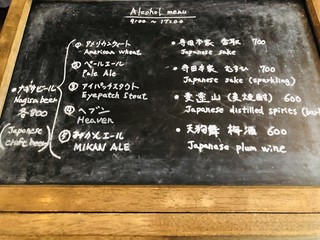 Alcohol menu
9:00 〜 17:00
ナギサビール
Nagisa beer
各800
(Japanese
craft beer)
① アメリカンウィート
American wheat
② ペールエール
Pale Ale
③ アイパッチスタウト
Eyepatch Stout
④ ヘブン
Heaven
⑤ みかんエール
MIKAN ALE
• 寺田本家 香取 700
Japanese sake
• 寺田本家 むすひ 700
Japanese sake (sparkling)
(麦焼酎) 600
Japanese distilled spirites
• 天狗舞 梅酒 600
Japanese plum wine